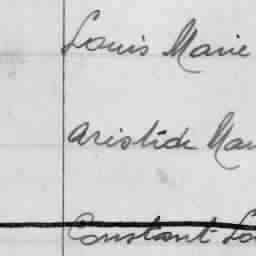 Louis Marie
Aristide Mau
Constant Lo